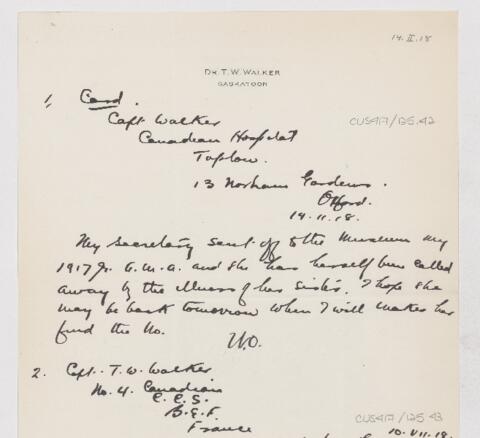 14.II.18
DR. T. W. WALKER
SASKATOON
1, Card.
Capt Walker
CUS417/125.42
Canadian Hospital
Taplow.
13 Norham Gardens.
Oxford.
14.11.18.
My secretary sent off to the Museum my
1917 Jr. A.M.A. and she has herself been called
away by the illness of her sister. I hope she
may be back tomorrow when I will make her
find the No.
W.O.
2. Capt. T. W. Walker
No. 4. Canadian
C.C.S.
B.E.F.
France
CUS417/125.43
10.VII.18.